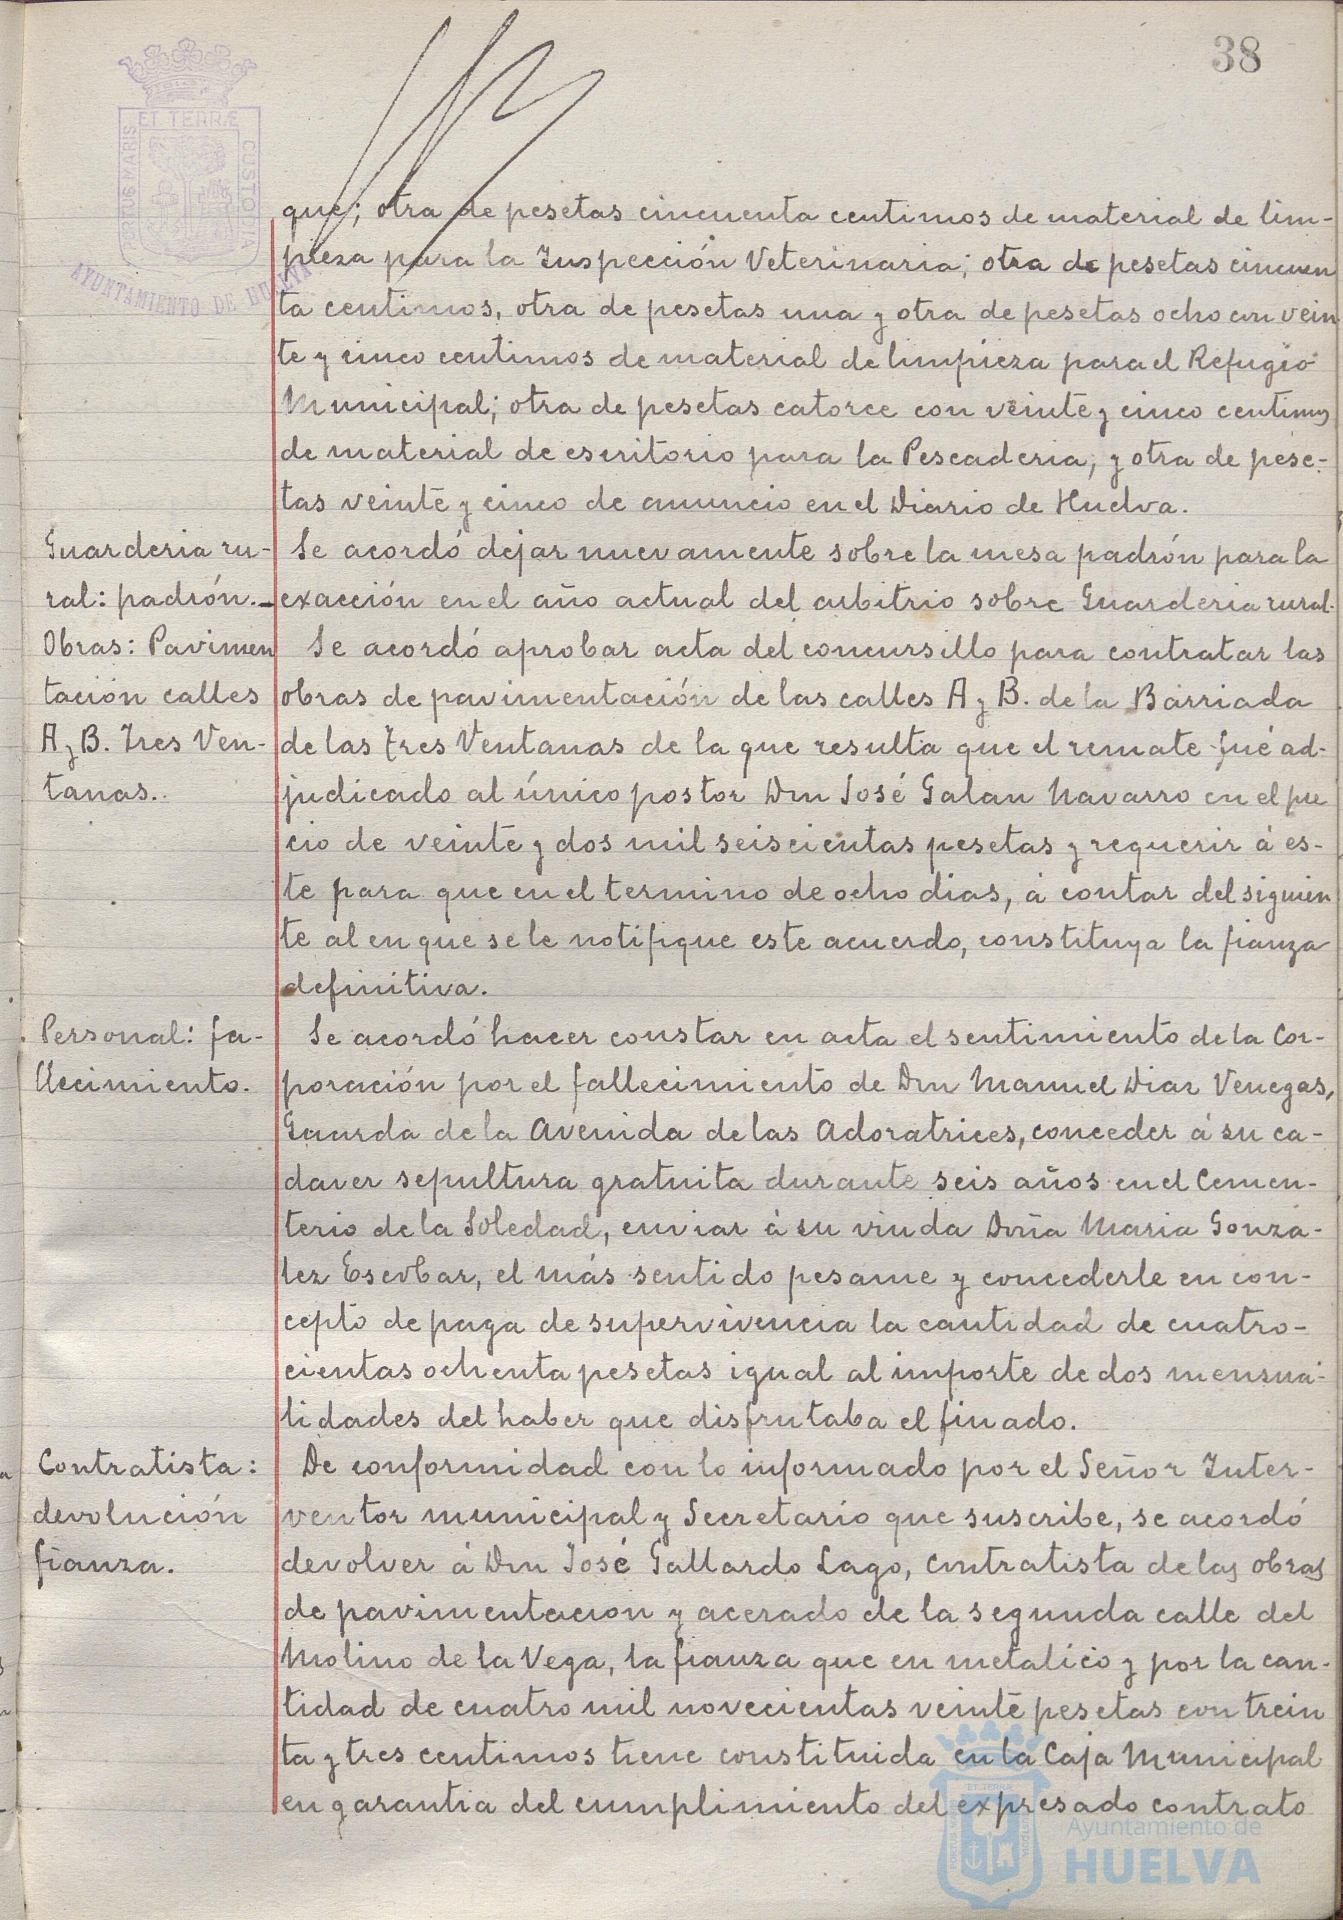 38
ET TERRÆ
PORTUS MARIS
CUSTODIA
AYUNTAMIENTO DE HUELVA
que; otra de pesetas cincuenta centimos de material de lim-
pieza para la Inspección Veterinaria; otra de pesetas cincuen
ta centimos, otra de pesetas una y otra de pesetas ocho con vein
te y cinco centimos de material de limpieza para el Refugio
Municipal; otra de pesetas catorce con veinte y cinco centimos
de material de escritorio para la Pescaderia, y otra de pese-
tas veinte y cinco de anuncio en el Diario de Huelva.
Guarderia ru-
ral: padrón.-
Se acordó dejar nuevamente sobre la mesa padrón para la
exacción en el año actual del arbitrio sobre Guarderia rural.
Obras: Pavimen
tación calles
A y B. Tres Ven-
tanas.
Se acordó aprobar acta del concursillo para contratar las
obras de pavimentación de las calles A y B. de la Barriada
de las Tres Ventanas de la que resulta que el remate fué ad-
judicado al único postor Don José Galan Navarro en el pre
cio de veinte y dos mil seiscientas pesetas y requerir á es-
te para que en el termino de ocho dias, á contar del siguien
te al en que se le notifique este acuerdo, constituya la fianza
definitiva.
Personal: fa-
llecimiento.
Se acordó hacer constar en acta el sentimiento de la Cor-
poración por el fallecimiento de Don Manuel Diaz Venegas,
Guarda de la Avenida de las Adoratrices, conceder á su ca-
daver sepultura gratuita durante seis años en el Cemen-
terio de la Soledad, enviar á su viuda Doña Maria Gonzá-
lez Escobar, el más sentido pesame y concederle en con-
cepto de paga de supervivencia la cantidad de cuatro-
cientas ochenta pesetas igual al importe de dos mensua-
lidades del haber que disfrutaba el finado.
Contratista:
devolución
fianza.
De conformidad con lo informado por el Señor Inter-
ventor municipal y Secretario que suscribe, se acordó
devolver á Don José Gallardo Lago, contratista de las obras
de pavimentacion y acerado de la segunda calle del
Molino de la Vega, la fianza que en metalico y por la can-
tidad de cuatro mil novecientas veinte pesetas con trein
ta y tres centimos tiene constituida en la Caja Municipal
en garantia del cumplimiento del expresado contrato
Ayuntamiento de
HUELVA